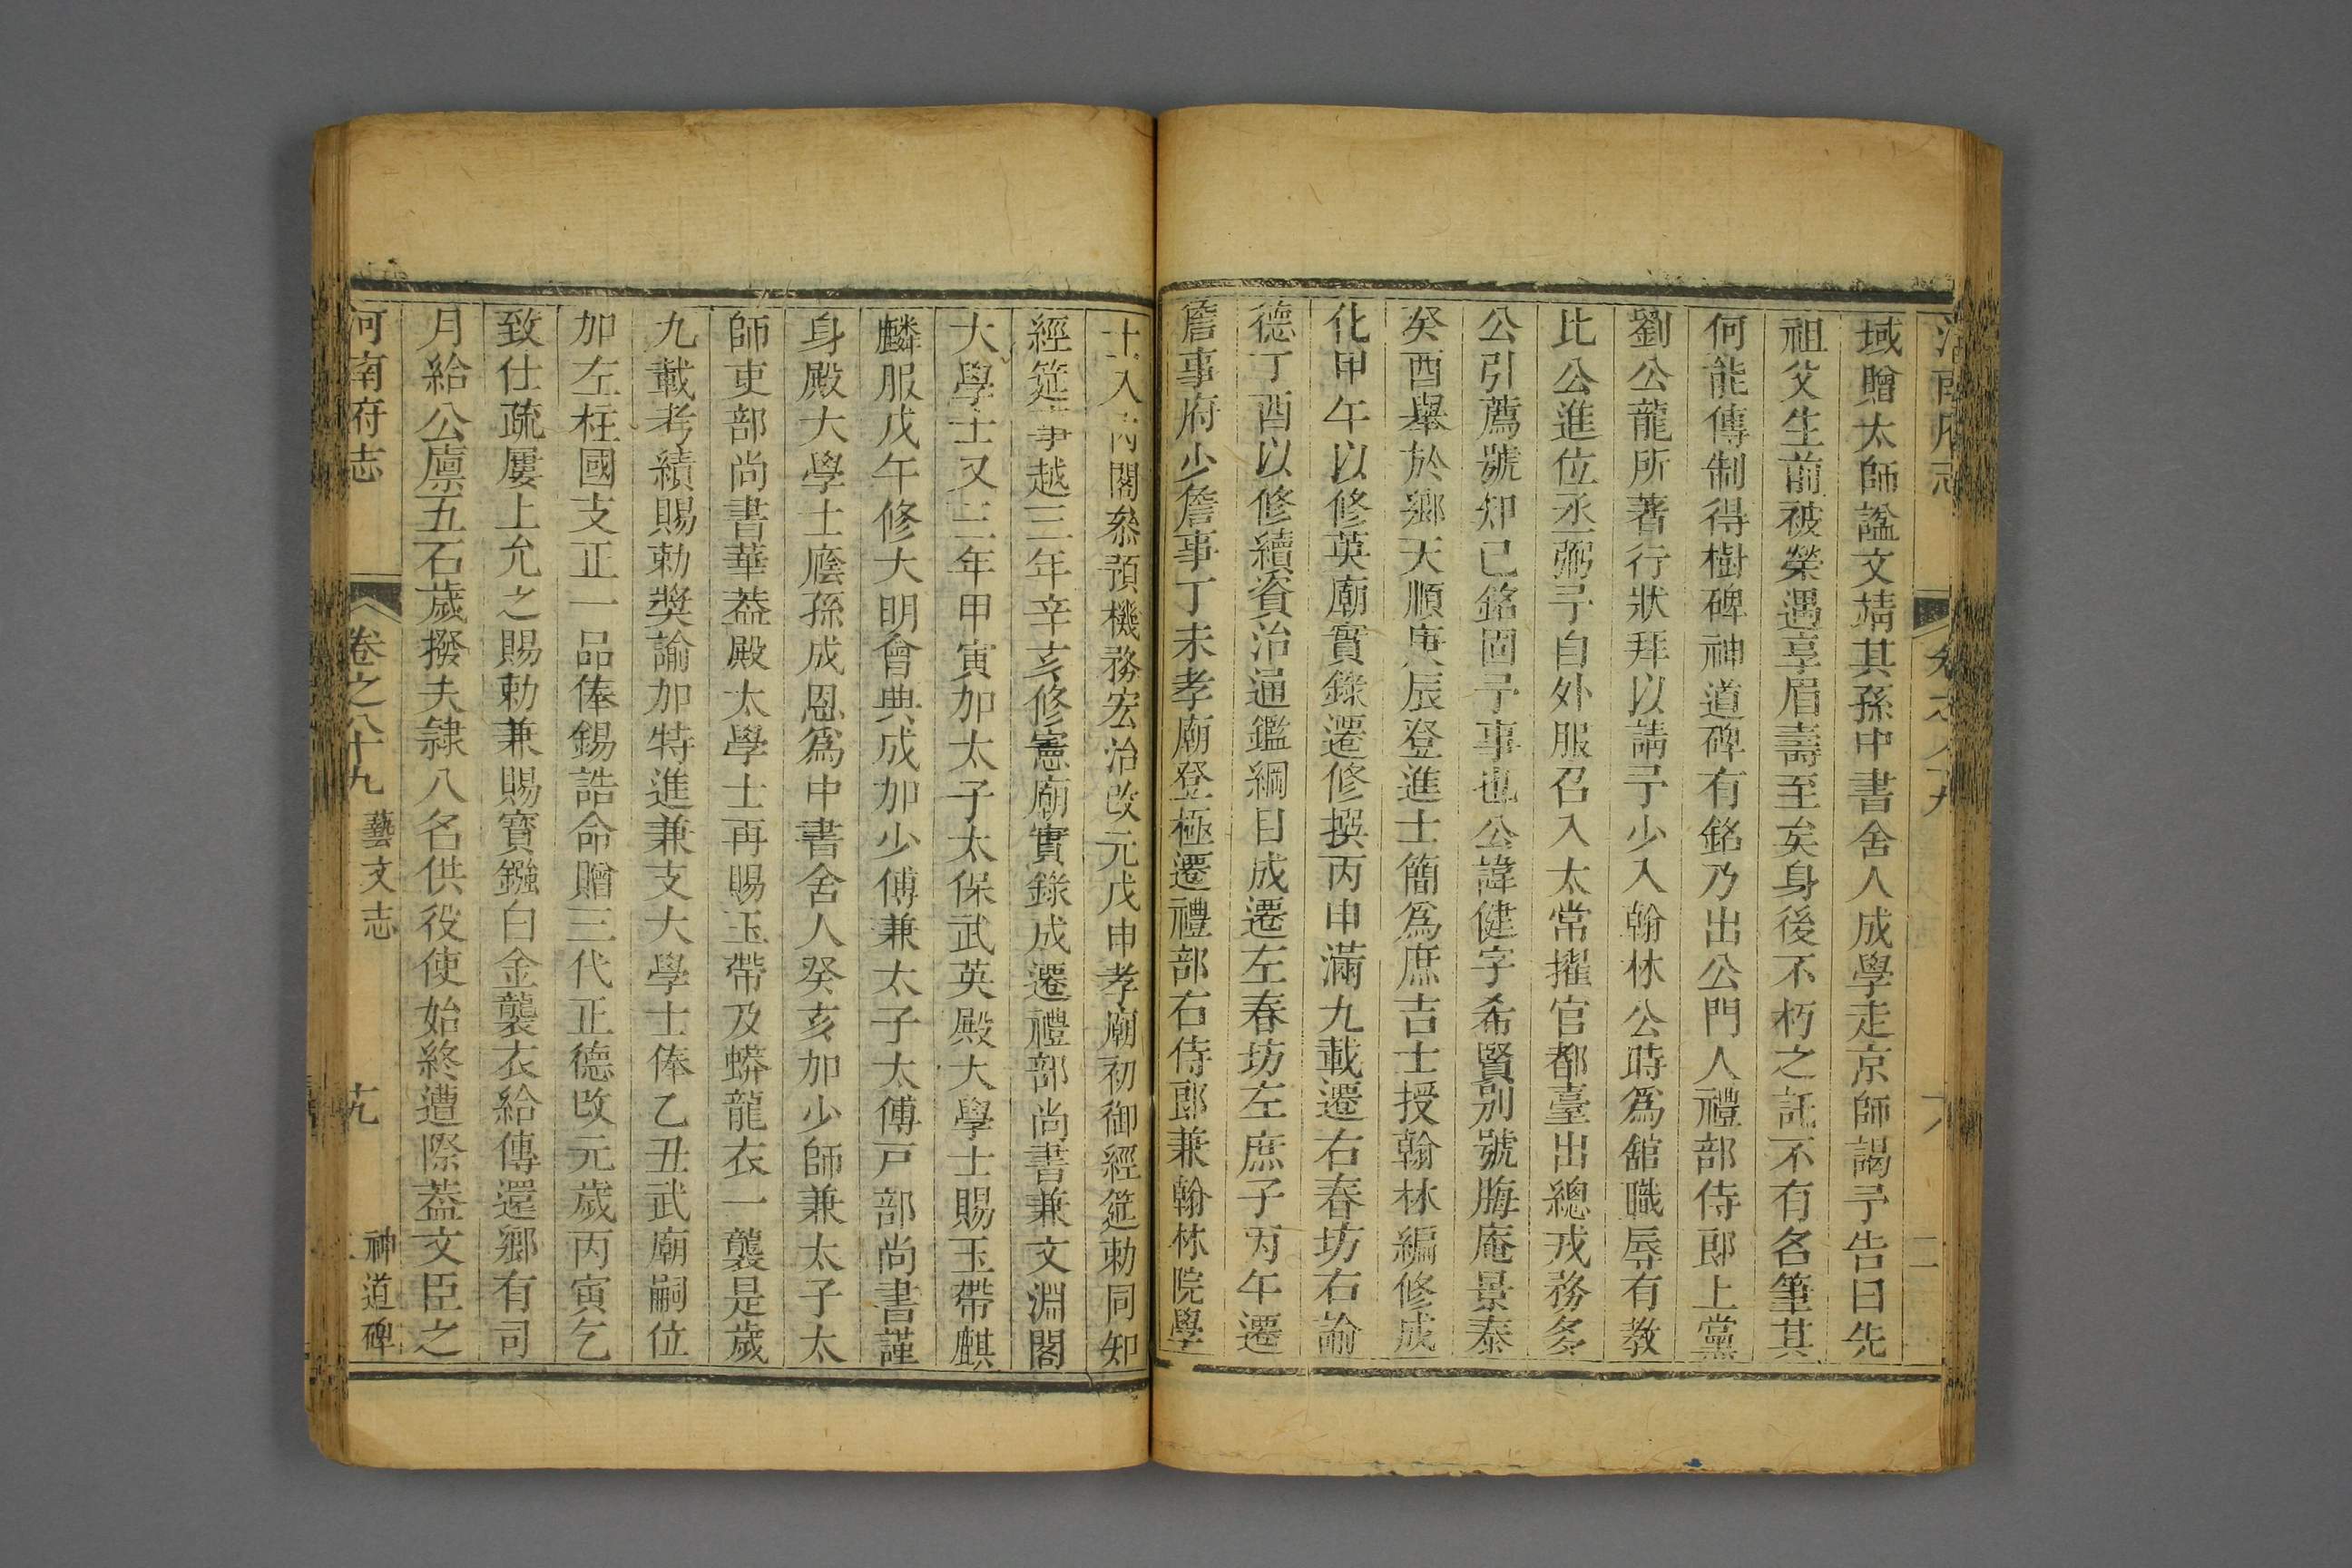 域贈太師諡文靖其孫中書舍人成學走京師謁予告曰先
祖父生前被榮遇享眉壽至矣身後不朽之託不有名筆其
何能傳制得樹碑神道碑有銘乃出公門人禮部侍郎上黨
劉公龍所著行狀拜以請予少入翰林公時為舘職辱有教
比公進位丞弼予自外服召入太常擢官都臺出總戎務多
公引薦號知己銘固予事也公諱健字希賢別號晦庵景泰
癸酉舉於鄉天順庚辰登進士簡為庶吉士授翰林編修成
化甲午以修英廟實錄遷修撰丙申滿九載遷右春坊右諭
德丁酉以修續資治通鑑綱目成遷左春坊左庶子丙午遷
詹事府少詹事丁未孝廟登極遷禮部右侍郎兼翰林院學
士入內閣叅預機務宏治改元戊申孝廟初御經筵勅同知
經筵事越三年辛亥修憲廟實錄成遷禮部尚書兼文淵閣
大學士又三年甲寅加太子太保武英殿大學士賜玉帶麒
麟服戊午修大明會典成加少傅兼太子太傅戸部尚書謹
身殿大學士廕孫成恩為中書舍人癸亥加少師兼太子太
師吏部尚書華蓋殿太學士再賜玉帶及蟒龍衣一襲是歲
九載考績賜勅奬諭加特進兼支大學士俸乙丑武廟嗣位
加左柱國支正一品俸錫誥命贈三代正德改元歲丙寅乞
致仕疏屢上允之賜勅兼賜寶鏹白金襲衣給傳還鄉有司
月給公廩五石歲撥夫隸八名供役使始終遭際蓋文臣之
河南府志 卷之八十九 藝文志 神道碑 十九